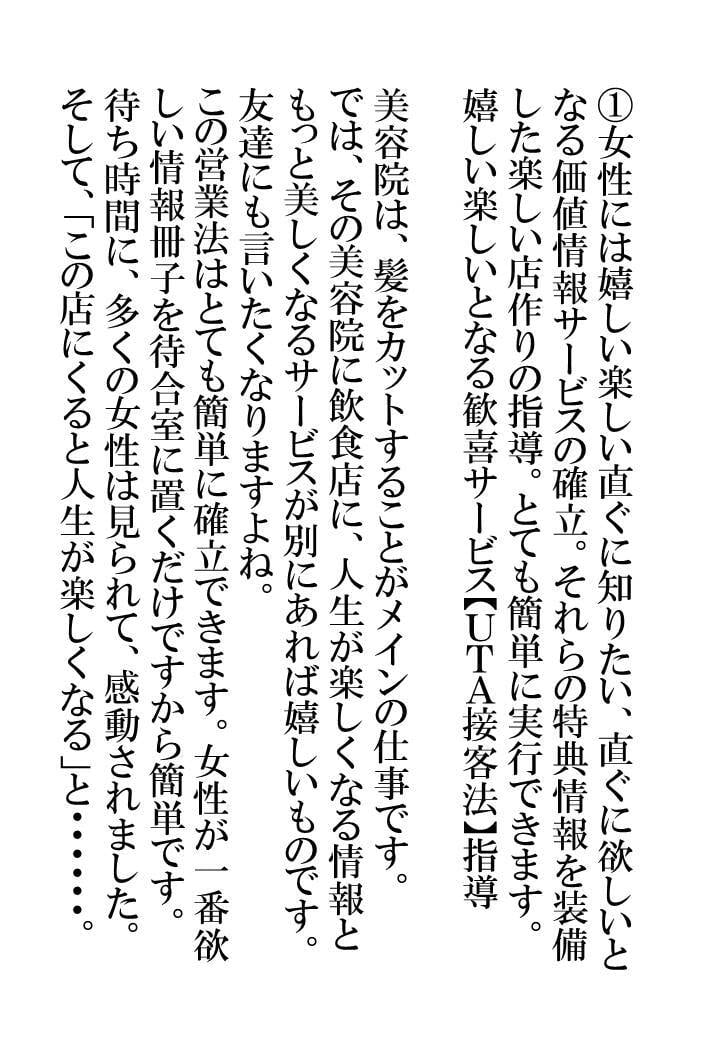 ①女性には嬉しい楽しい直ぐに知りたい、直ぐに欲しいと
なる価値情報サービスの確立。それらの特典情報を装備
した楽しい店作りの指導。とても簡単に実行できます。
嬉しい楽しいとなる歓喜サービス【UTA接客法】指導
美容院は、髪をカットすることがメインの仕事です。
では、その美容院に飲食店に、人生が楽しくなる情報と
もっと美しくなるサービスが別にあれば嬉しいものです。
友達にも言いたくなりますよね。
この営業法はとても簡単に確立できます。女性が一番欲
しい情報冊子を待合室に置くだけですから簡単です。
待ち時間に、多くの女性は見られて、感動されました。
そして、「この店にくると人生が楽しくなる」と・・・・・・。